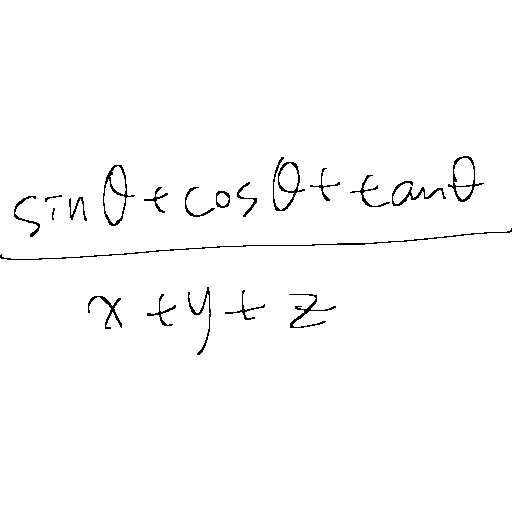 sinθ+cosθ+tanθ
x+y+z